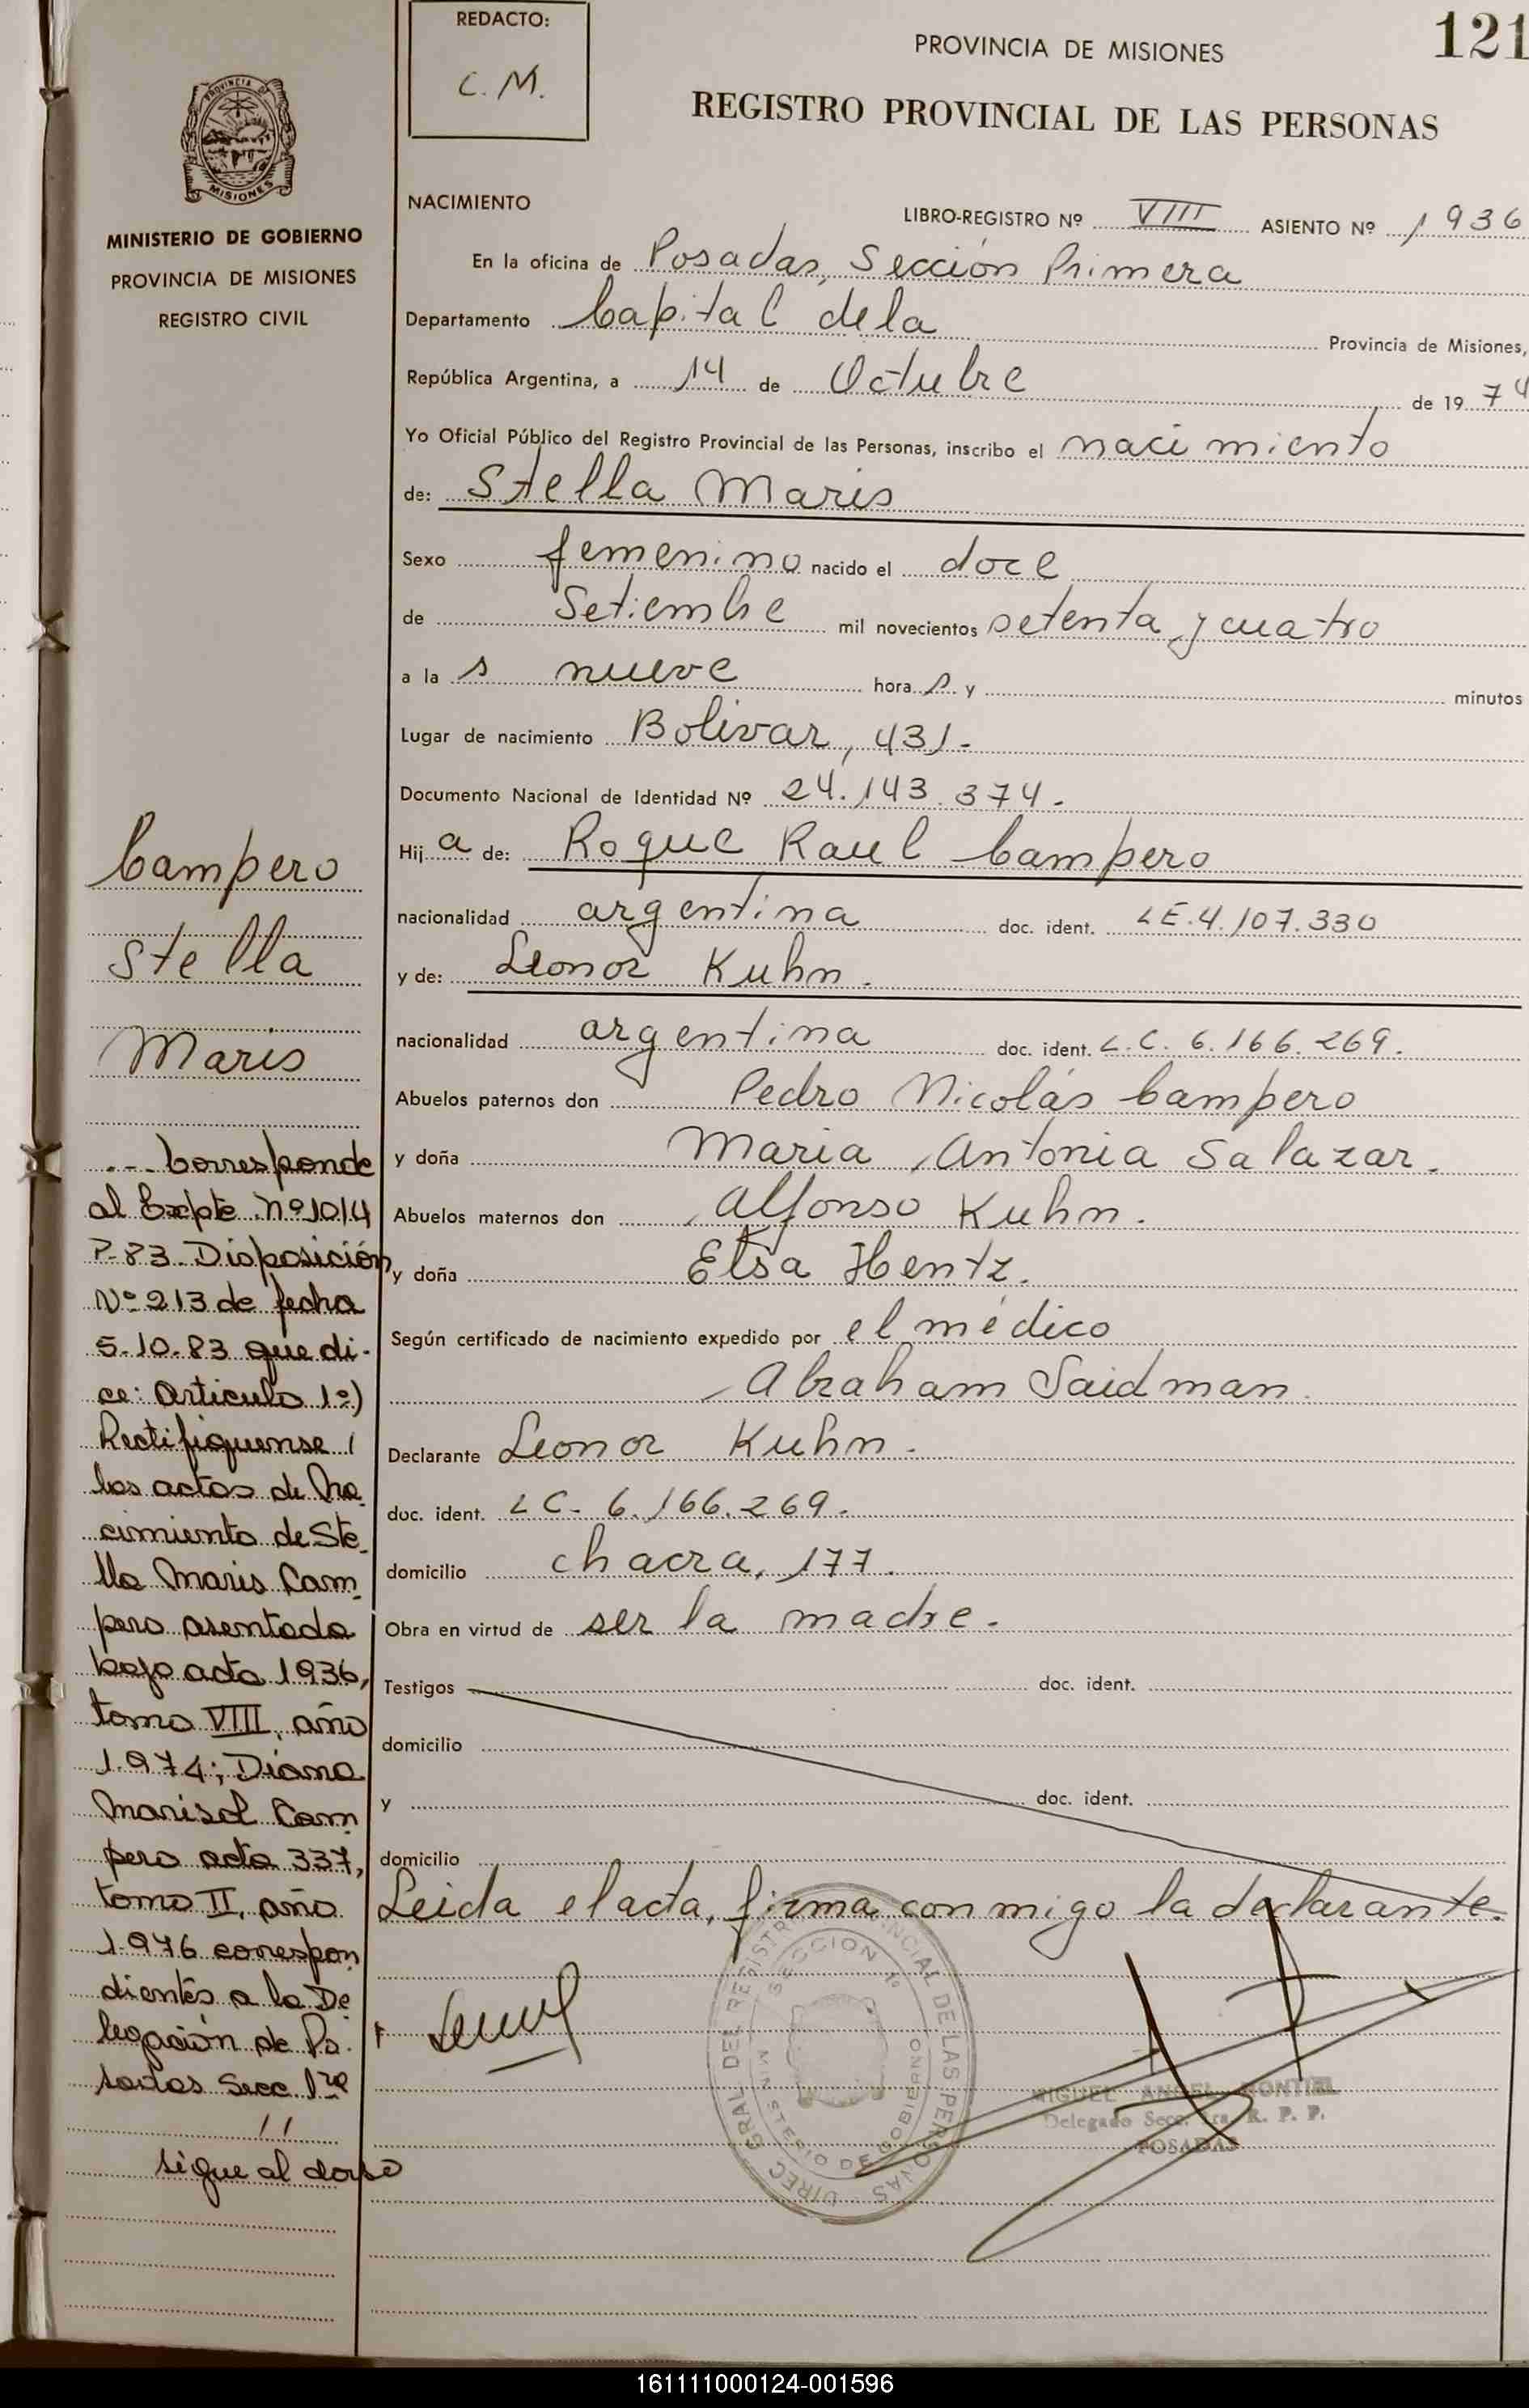 REDACTO:
C. M.
PROVINCIA DE MISIONES
121
REGISTRO PROVINCIAL DE LAS PERSONAS
PROVINCIA DE
MISIONES
MINISTERIO DE GOBIERNO
PROVINCIA DE MISIONES
REGISTRO CIVIL
NACIMIENTO
LIBRO-REGISTRO Nº VIII ASIENTO Nº 1936
En la oficina de Posadas, Sección Primera
Departamento Capital de la Provincia de Misiones,
República Argentina, a 14 de Octubre de 1974
Yo Oficial Público del Registro Provincial de las Personas, inscribo el nacimiento
de: Stella Maris
Sexo femenino nacido el doce
de Setiembre mil novecientos setenta y cuatro
a la s nueve hora s y minutos
Lugar de nacimiento Bolivar, 431.-
Documento Nacional de Identidad Nº 24.143.374.-
Hij a de: Roque Raul Campero
nacionalidad argentina doc. ident. LE.4.107.330
y de: Leonor Kuhn.
nacionalidad argentina doc. ident. L.C. 6.166.269.
Abuelos paternos don Pedro Nicolás Campero
y doña Maria Antonia Salazar.
Abuelos maternos don Alfonso Kuhn.
y doña Elsa Hentz.
Según certificado de nacimiento expedido por el médico
Abraham Saidman.
Declarante Leonor Kuhn.
doc. ident. LC- 6.166.269.
domicilio chacra, 177.
Obra en virtud de ser la madre.
Testigos doc. ident.
domicilio
y doc. ident.
domicilio
Leida el acta, firma conmigo la declarante.
DIREC. GRAL. DEL REGISTRO PROVINCIAL DE LAS PERSONAS
SECCION 1º
MINISTERIO DE GOBIERNO
MIGUEL ANGEL MONTIEL
Delegado Secc. 1ra. R. P. P.
POSADAS
Campero
Stella
Maris
... Corresponde
al Expte Nº 1014
P-83. Disposición
Nº 213 de fecha
5-10-83 que di-
ce: Articulo 1º)
Rectifiquense /
las actas de Na
cimiento de Ste
lla Maris Cam
pero asentada
bajo acta 1936,
tomo VIII, año
1.974; Diana
Marisol Cam
pero acta 337,
tomo II, año
1.976 correspon
dientes a la De
legación de Po
sadas Secc 1ra
//
sigue al dorso
161111000124-001596